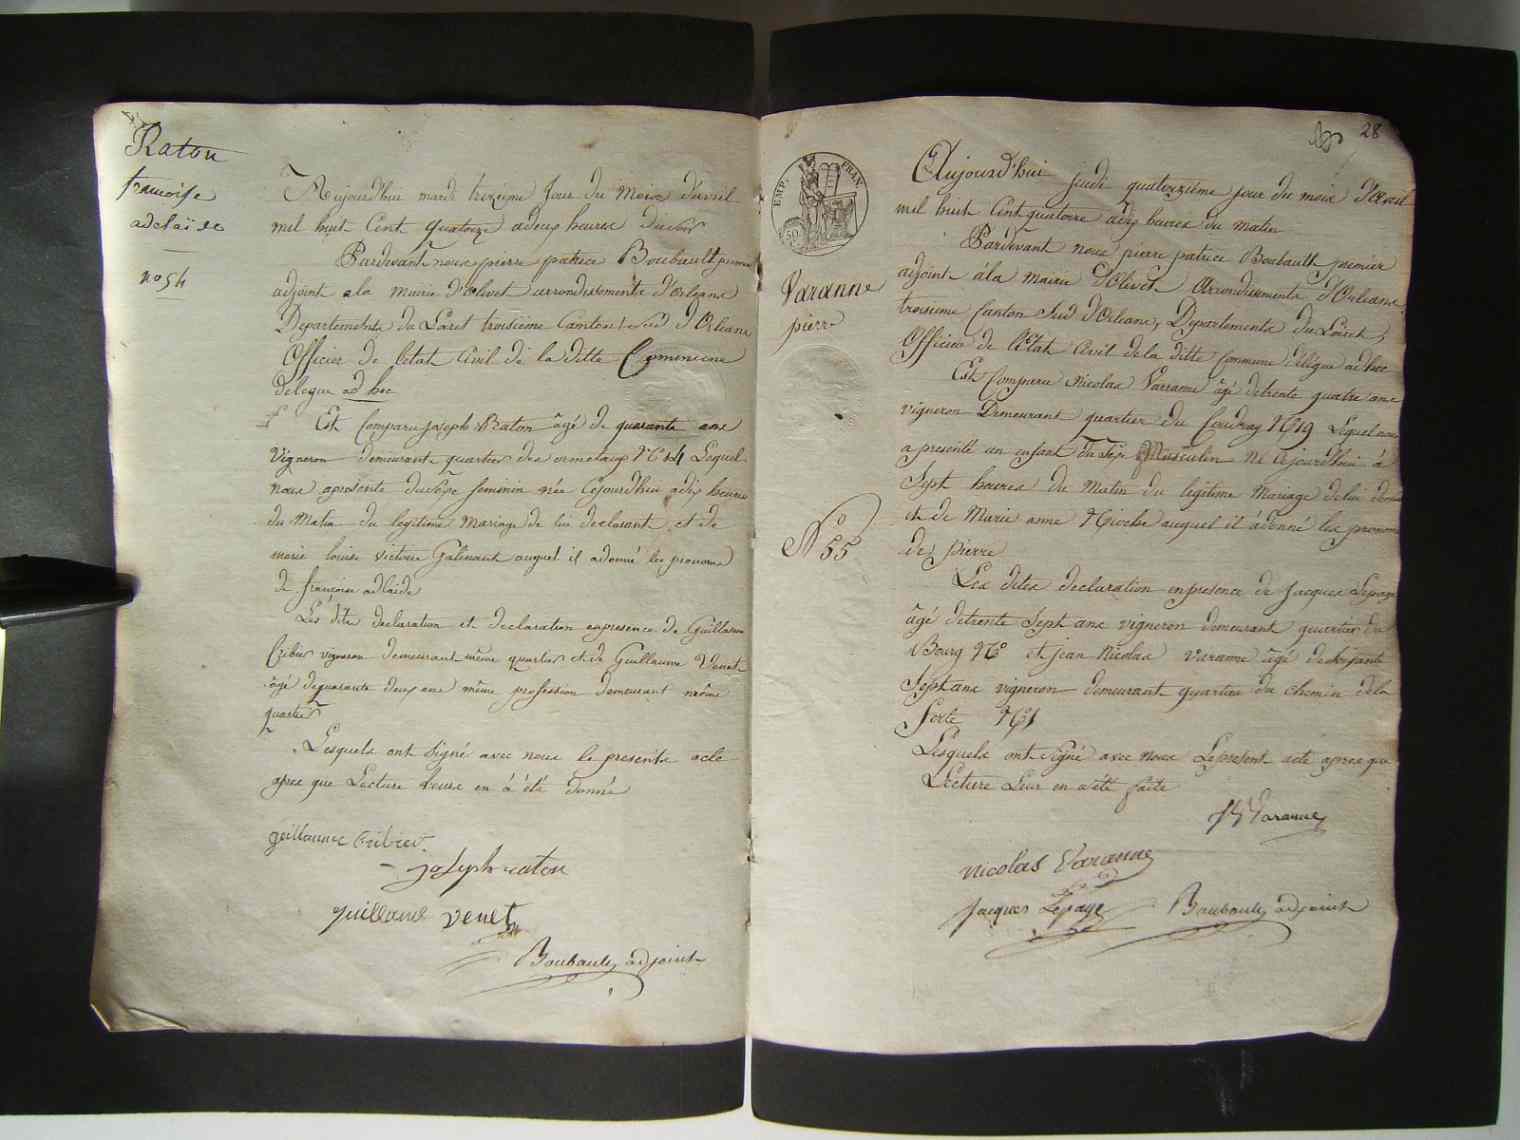 Raton
francoise
adelaïde
no 54
Aujourdhui mardi treizieme Jour du Mois d'avril
mil huit Cent quatorze a deux heures du soir
Pardevant nous pierre patrice Boubault premier
adjoint a la mairie d'Olivet arrondissements d'Orleans
Departements du Loiret troisieme Canton sud d'Orleans
Officier de l'etat Civil de la ditte Commune
delegue ad hoc
Est Comparu joseph Raton âgé de quarante ans
Vigneron demeurant quartier des ormeteaux No 14 Lequel
nous apresente du sexe feminin née Cejourdhui a dix heures
du Matin du legitime Mariage de lui declarant et de
marie louise victoire Galinaut auquel il adonné les pronoms
de françoise adlaide
Les dites declaration et declaration enpresence de Guillaume
Cribier vigneron demeurant même quartier et de Guillaume Venet
âgé dequarante deux ans même profession demeurant même
quartier
Lesquels ont signé avec nous le presente acte
apres que Lecture leurs en à été donné
guillaume Cribier
joseph raton
guillaume venet
Boubault adjoint
28
EMP. FRAN
50
Varanne
pierre
No 55
Aujourd'hui jeudi quatorzième jour du mois d'Avril
mil huit Cent quatorze adix heures du matin
Pardevant nous pierre patrice Boubault premier
adjoint àla mairie d'Olivet Arrondissements d'Orleans
troisieme Canton Sud d'Orleans, Departements du Loiret,
Officier de l'Etat Civil dela ditte Commune délégue ad hoc
Est Comparu Nicolas Varanne âgé detrente quatre ans
vigneron Demeurant quartier du Coudray No 19 Lequel nous
a presenté un enfant Du Sexe Masculin né Cejourdhui à
Sept heures du Matin du legitime Mariage delui
et de Marie anne auquel il àdonné les pronoms
de pierre
Les dites declaration enpresence de Jacques Lepage
âgé detrente Sept ans vigneron demeurant quartier du
Bourg No et jean Nicolas Varanne âgé desoixante
Sept ans vigneron demeurant quartier du chemin dela
ferte No 1
Lesquels ont Signé avec nous Lepresent acte apres que
Lecture Leur en aété faite
Varanne
nicolas Varanne
jacques Lepage
Boubault adjoint